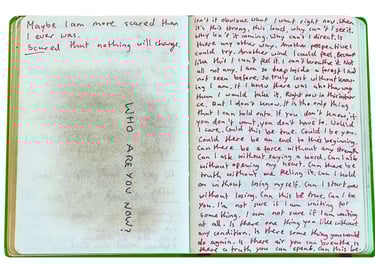 Maybe I am more scared than
I ever was.
Scared that nothing will change.
WHO ARE YOU NOW?
Isn't it obvious what I want right now. When
it's this strong, this loud, why can't I see it.
Why isn't it coming. Why can't I direct it.
Is there any other way. Another perspective I
could try. Another wind I could feel, because
like this I can't feel it. I can't breathe it. Not
at all not any. I am so deep inside a forest I had
not seen before. So truly lost without know-
ing I am. If I knew there was another way
then I would take it. Right now in this chan-
ce. But I don't know. It is the only thing
that I can hold onto. If you don't know, if
you don't want, you don't have to. Would
I care. Could this be true. Could I be you.
Could there be an end to this beginning.
Can there be a force without any strength.
Can I ask without saying a word. Can I ask
without opening my heart. Can there be
truth without me feeling it. Can I hold
on without losing myself. Can I start over
without losing. Can this be true. Can I be
you. I'm not sure if I am waiting for
something. I am not sure if I am waiting
at all. Is there one thing you like without
any condition. Is there some thing you would
do again. Is there air you can breathe. Is
there a truth you can speak. Can this be